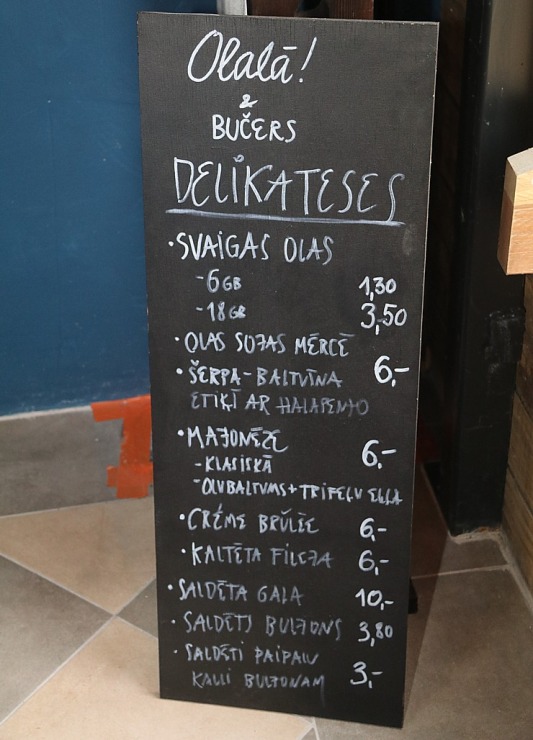 Olalā!
&
BUČERS
DELIKATESES
• SVAIGAS OLAS
- 6 GB 1,30
- 18 GB 3,50
• OLAS SOJAS MĒRCĒ
• ŠERPA - BALTVĪNA 6,-
ETIĶĪ AR HALAPENJO
• MAJONĒZE 6,-
- KLASISKĀ
- OLVBALTUMS + TRIFEĻU EĻĻA
• CRÉME BRŪLĒE 6,-
• KALTĒTA FILEJA 6,-
• SALDĒTA GAĻA 10,-
• SALDĒTS BULJONS 3,80
• SALDĒTI PAIPALU 3,-
KAULI BULJONAM